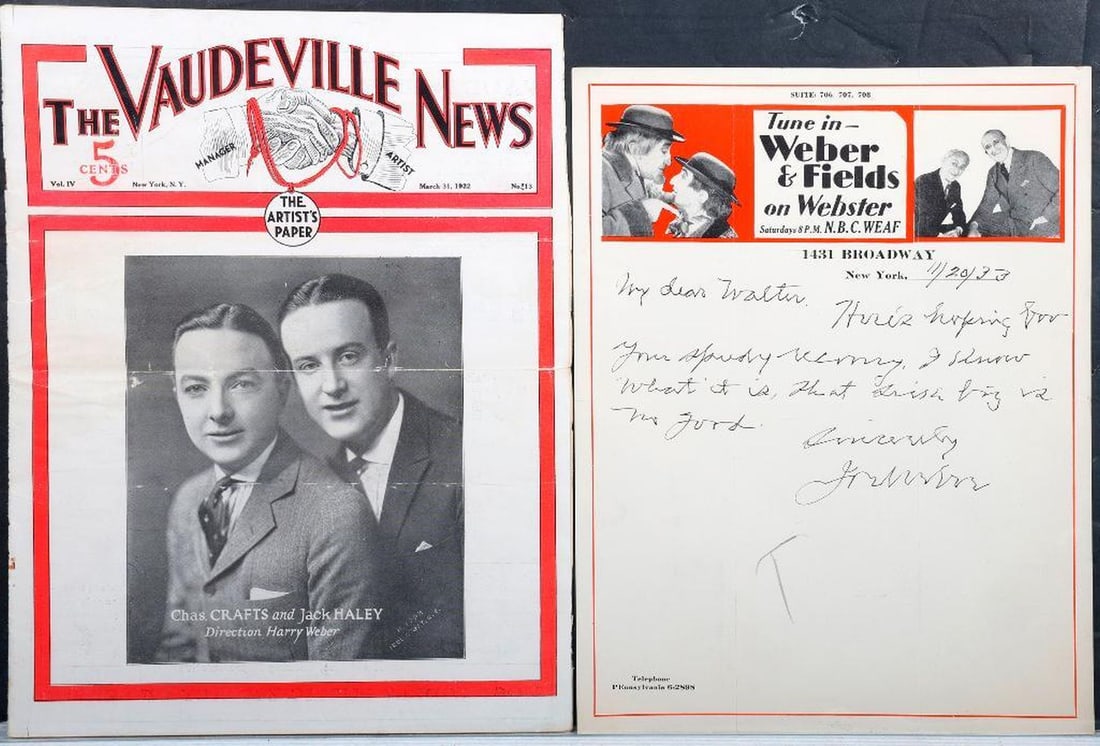 THE VAUDEVILLE NEWS
MANAGER
ARTIST
5 CENTS
Vol. IV New York, N. Y. March 31, 1922 No. 13
THE
ARTIST'S
PAPER
Chas. CRAFTS and Jack HALEY
Direction Harry Weber
SUITE: 706, 707, 708
Tune in—
Weber
& Fields
on Webster
Saturdays 8 P.M. N.B.C. WEAF
1431 BROADWAY
New York, 11/20/33
My dear Walter.
Here's hoping for
your speedy recovery, I know
what it is, that Irish boy is
no good.
Sincerely
Joe Weber
T
Telephone
PEnnsylvania 6-2898